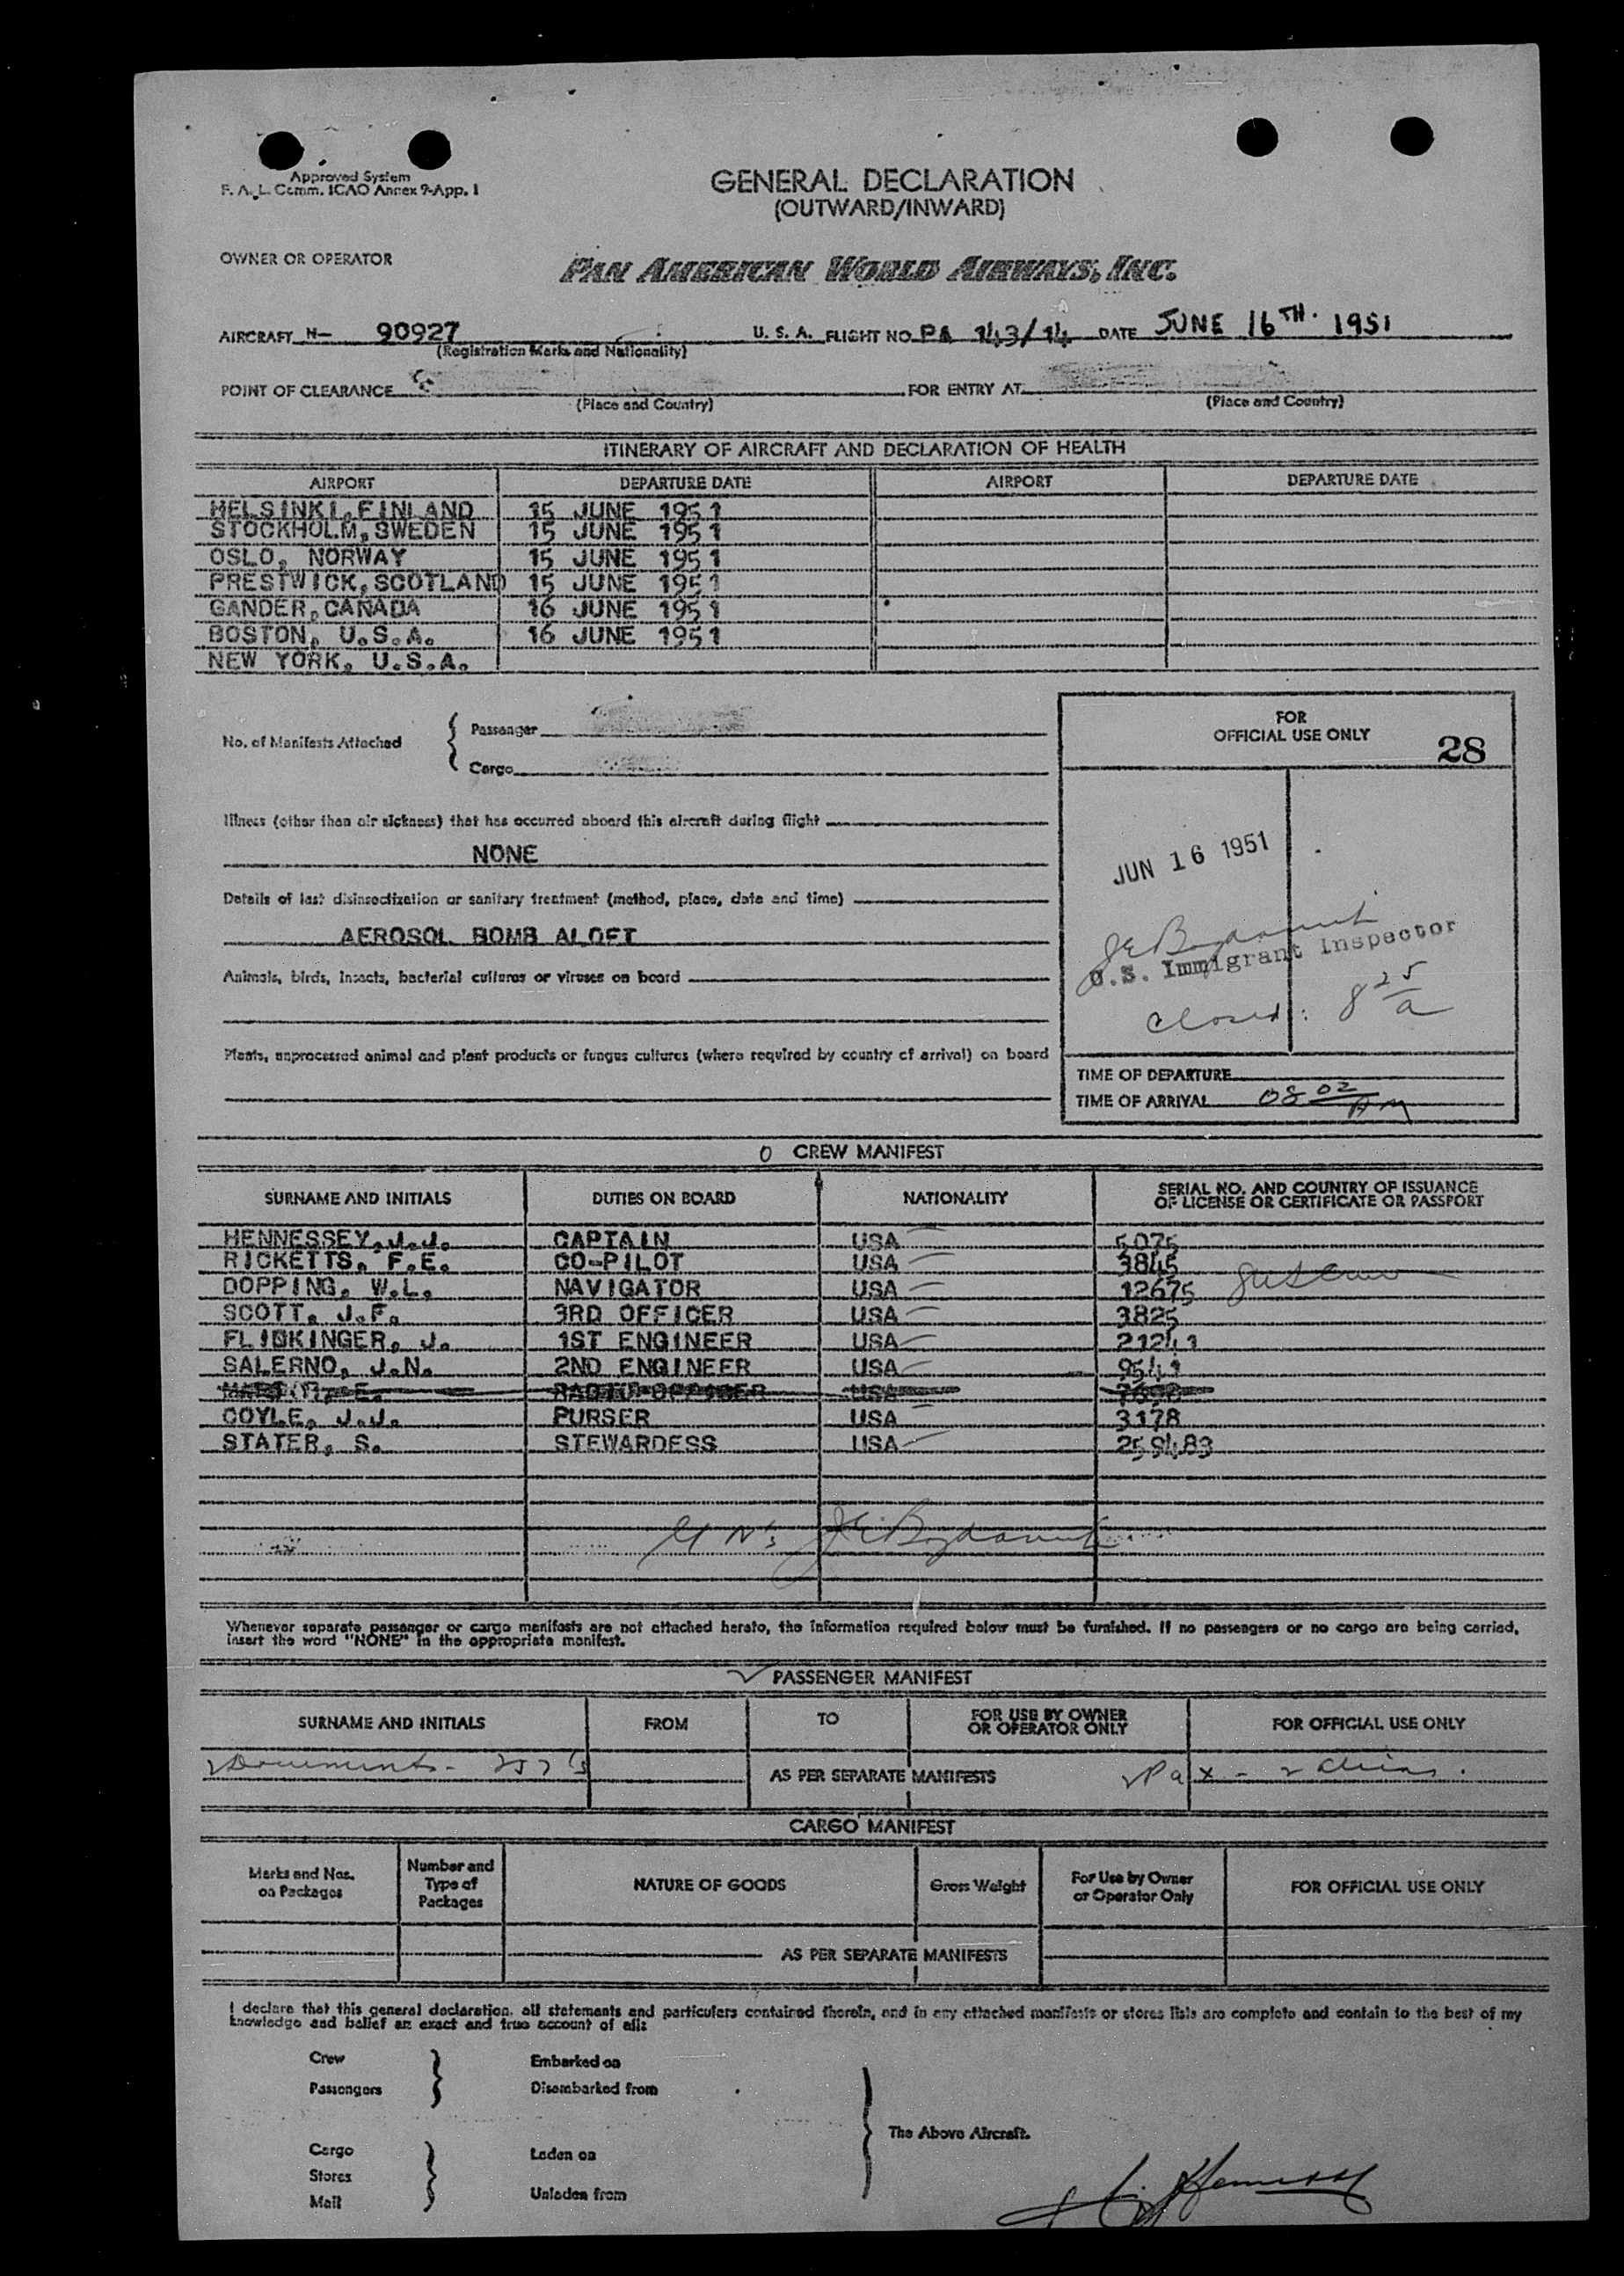 Approved System
F. A. L. Comm. ICAO Annex 9-App. 1
GENERAL DECLARATION
(OUTWARD/INWARD)
OWNER OR OPERATOR PAN AMERICAN WORLD AIRWAYS, INC.
AIRCRAFT N- 90927 U. S. A. FLIGHT NO. PA 143/14 DATE JUNE 16TH. 1951
(Registration Marks and Nationality)
POINT OF CLEARANCE FOR ENTRY AT
(Place and Country) (Place and Country)
ITINERARY OF AIRCRAFT AND DECLARATION OF HEALTH
AIRPORT DEPARTURE DATE AIRPORT DEPARTURE DATE
HELSINKI, FINLAND 15 JUNE 1951
STOCKHOLM, SWEDEN 15 JUNE 1951
OSLO, NORWAY 15 JUNE 1951
PRESTWICK, SCOTLAND 15 JUNE 1951
GANDER, CANADA 16 JUNE 1951
BOSTON, U.S.A. 16 JUNE 1951
NEW YORK, U.S.A.
No. of Manifests Attached { Passenger
Cargo
Illness (other than air sickness) that has occurred aboard this aircraft during flight
NONE
Details of last disinsectization or sanitary treatment (method, place, date and time)
AEROSOL BOMB ALOFT
Animals, birds, insects, bacterial cultures or viruses on board
Plants, unprocessed animal and plant products or fungus cultures (where required by country of arrival) on board
FOR
OFFICIAL USE ONLY
28
JUN 16 1951
U.S. Immigrant Inspector
Closed: 8 25 a
TIME OF DEPARTURE
TIME OF ARRIVAL 08 02 AM
CREW MANIFEST
SURNAME AND INITIALS DUTIES ON BOARD NATIONALITY SERIAL NO. AND COUNTRY OF ISSUANCE
OF LICENSE OR CERTIFICATE OR PASSPORT
HENNESSEY, J.J. CAPTAIN USA 5075
RICKETTS, F.E. CO-PILOT USA 3845
DOPPING, W.L. NAVIGATOR USA 12675
SCOTT, J.F. 3RD OFFICER USA 3825
FLIDKINGER, J. 1ST ENGINEER USA 21241
SALERNO, J.N. 2ND ENGINEER USA 9541
COYLE, J.J. PURSER USA 3178
STATER, S. STEWARDESS USA 259483
Whenever separate passenger or cargo manifests are not attached hereto, the information required below must be furnished. If no passengers or no cargo are being carried,
insert the word "NONE" in the appropriate manifest.
PASSENGER MANIFEST
SURNAME AND INITIALS FROM TO FOR USE BY OWNER
OR OPERATOR ONLY FOR OFFICIAL USE ONLY
Documents - AS PER SEPARATE MANIFESTS Pax -
CARGO MANIFEST
Marks and Nos.
on Packages Number and
Type of
Packages NATURE OF GOODS Gross Weight For Use by Owner
or Operator Only FOR OFFICIAL USE ONLY
AS PER SEPARATE MANIFESTS
I declare that this general declaration, all statements and particulars contained therein, and in any attached manifests or stores lists are complete and contain to the best of my
knowledge and belief an exact and true account of all:
Crew Embarked on
Passengers Disembarked from
The Above Aircraft.
Cargo Laden on
Stores
Mail Unladen from